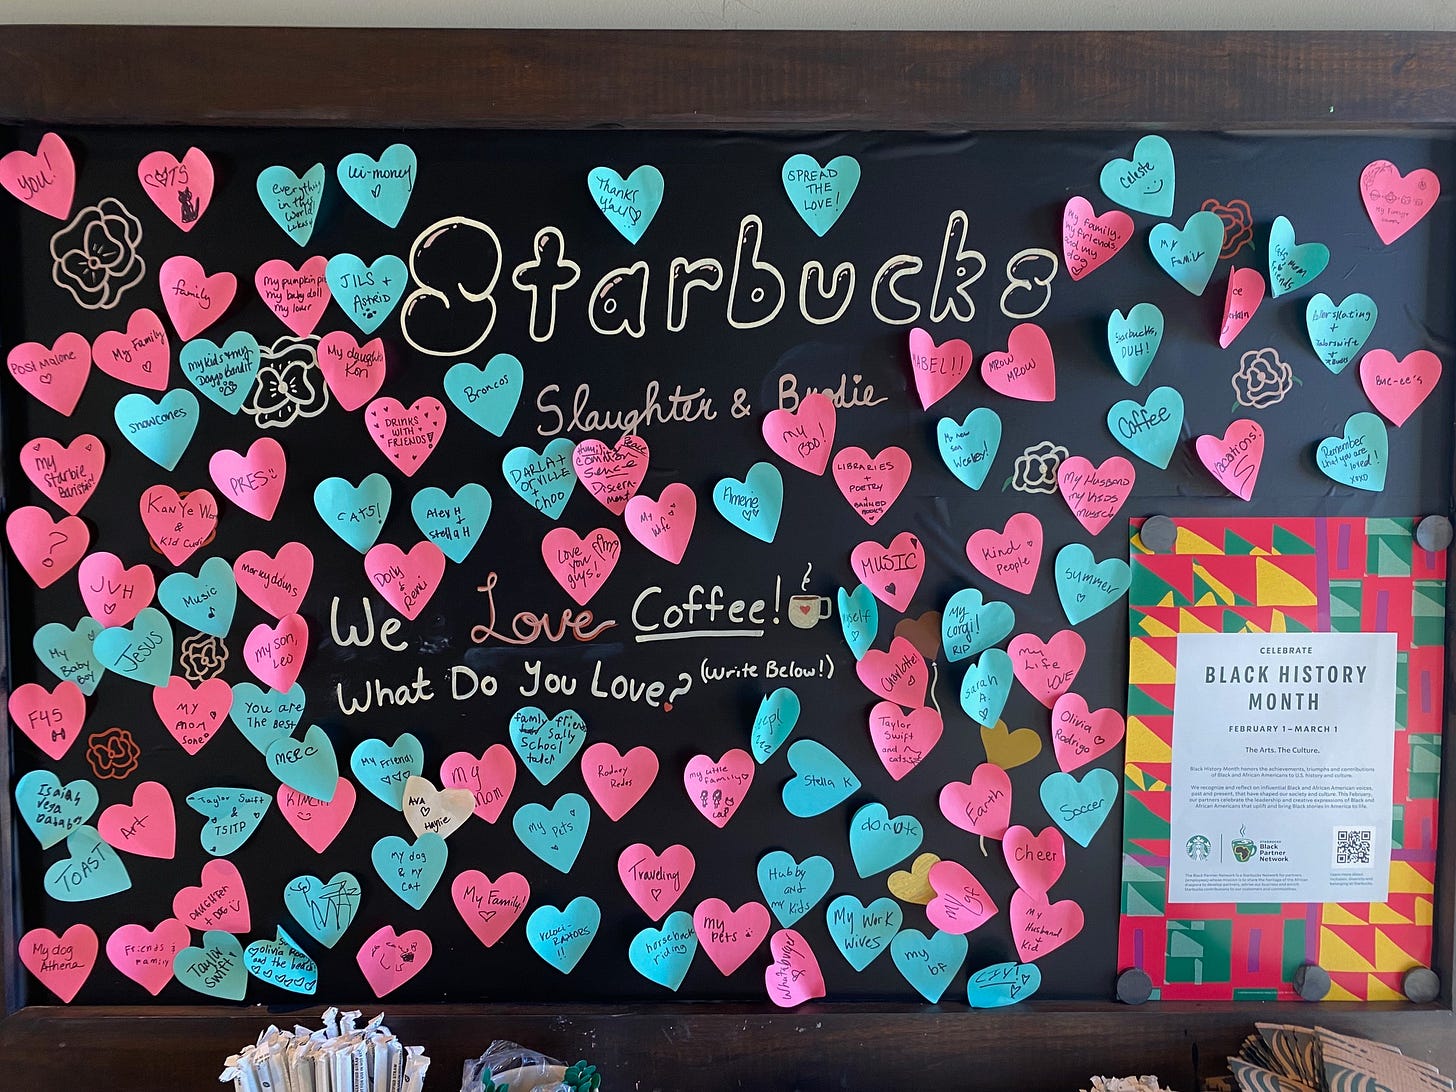 You!
CATS
everything
in this
world!
Lukas
Wi-money
Thanks
Y'all!
SPREAD
THE
LOVE!
Celeste
My family,
my friends,
and my
dog
My
Family
Starbucks
family
My pumpkin pie
my baby doll
my lover
JILS +
Astrid
Post Malone
My Family
my kids & my
Doggo Bandit
My daughter
Kori
Broncos
Slaughter & Brodie
MABEL!!
MROW
MROW
Starbucks,
DUH!
Buc-ee's
snowcones
DRINKS
WITH
FRIENDS!
My
Boo!
Coffee
vacations!
Remember
that you are
loved!
xoxo
My
Starbie
Baristas!
PRES
DARLA +
ORVILLE
+
Choo
Common
Sense
Discern-
ment
LIBRARIES
+
POETRY
+
BANNED
BOOKS
My new
son
Wesley!
My Husband
my kids
KanYe West
&
Kid Cudi
CATS!
Alex H
+
Stella H
My
Wife
?
JVH
Music
Dolly
&
Remi
Love
you
guys!
MUSIC
Kind
People
Summer
My
Baby
Boy
Jesus
my son,
Leo
We Love Coffee!
What Do You Love? (Write Below!)
My
corgi!
RIP
Charlotte!
Sarah
A.
My
Life
LOVE
F45
MY
You are
The Best
family friends
Sally
School
Taylor
Swift
and
cats
Olivia
Rodrigo
My
Friends
My
Mom
my little
Family
Stella K
Isaiah
Vega
Art
Taylor Swift
&
TSITP
AVA
My
Pets
donuts
Earth
Soccer
TOAST
My dog
& my
Cat
Traveling
Hubby
and
my kids
Cheer
DAUGHTER
+ DOG
My Family!
VELOCI-
RAPTORS
!!
horseback
riding
my
Pets
My Work
Wives
My gf
My
Husband
+
Kid
My dog
Athena
Friends &
Family
Taylor
Swift!
Whataburger
my
bf
CELEBRATE
BLACK HISTORY
MONTH
FEBRUARY 1–MARCH 1
The Arts. The Culture.
Black History Month honors the achievements, triumphs and contributions
of Black and African Americans to U.S. history and culture.
We recognize and reflect on influential Black and African American voices,
past and present, that have shaped our society and culture. This February,
our partners celebrate the leadership and creative expressions of Black and
African Americans that uplift and bring Black stories in America to life.
STARBUCKS
Black
Partner
Network